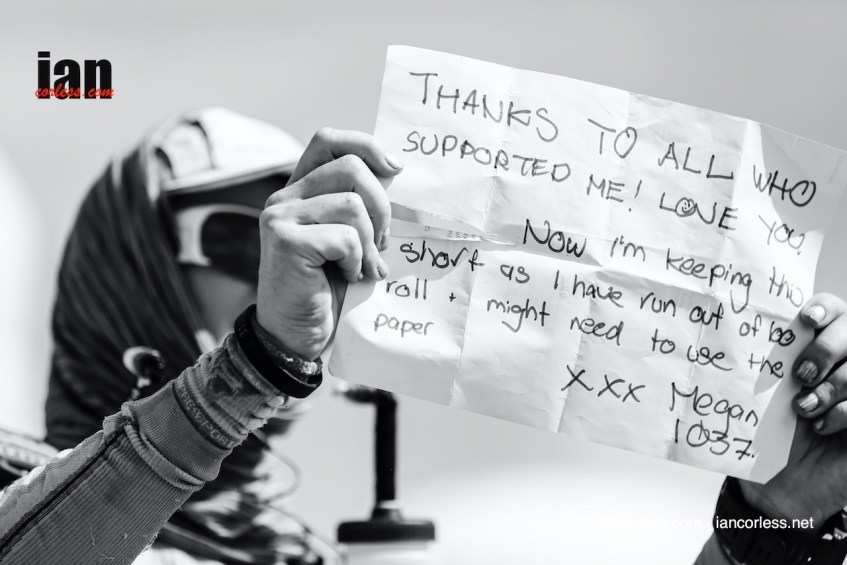 ian
corless.com
THANKS TO ALL WHO
SUPPORTED ME! LOVE YOU
Now i'm keeping this
short as I have run out of bo
roll + might need to use the
paper
xxx Megan
1037.
iancorless.net